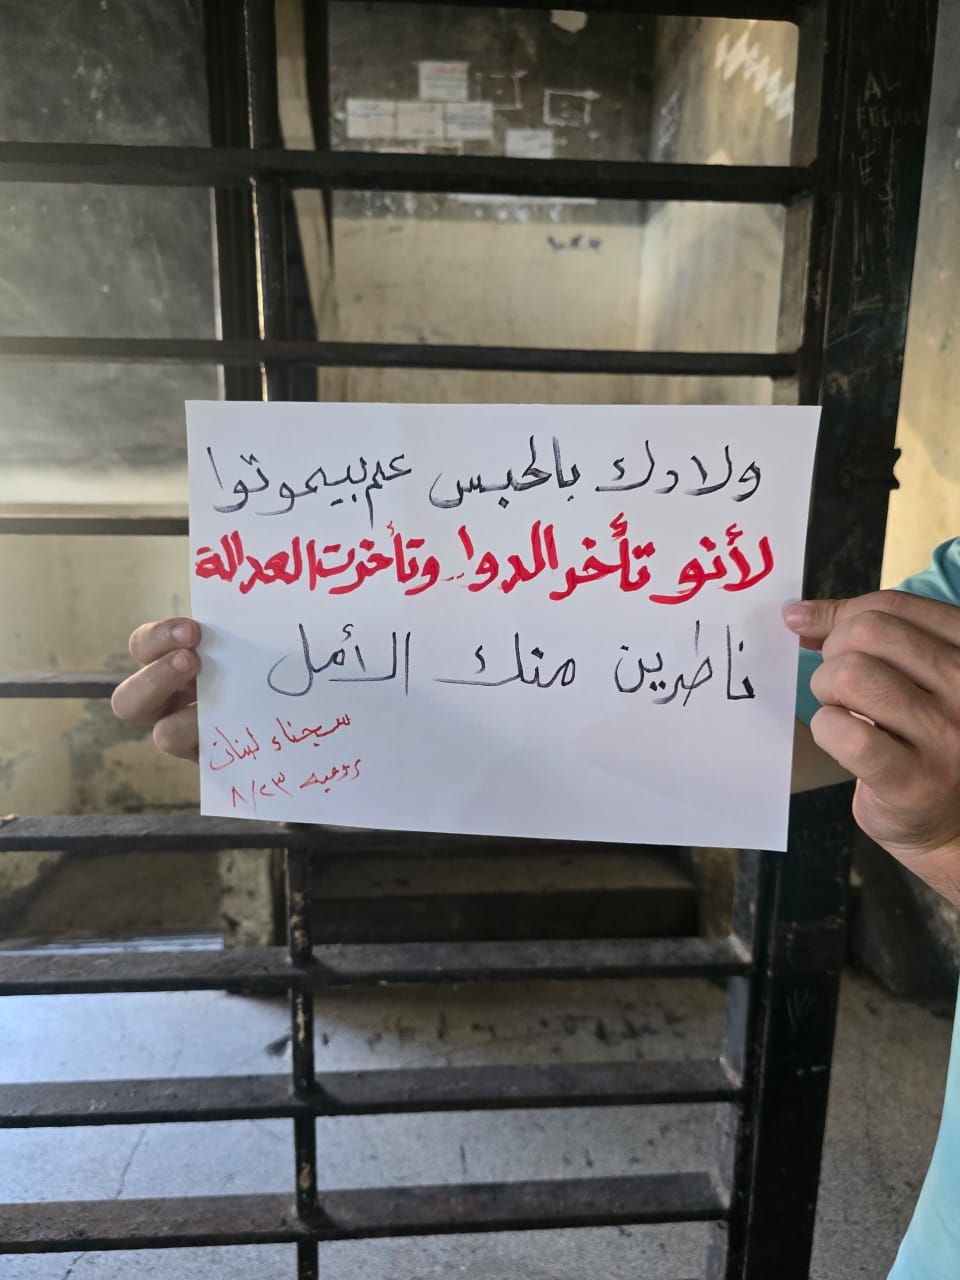 ولادك بالحبس عم بيموتوا
لأنو تأخر الدوا وتأخرت العدالة
ناطرين منك الأمل
سجناء لبنان
روميه ٨/٢٣